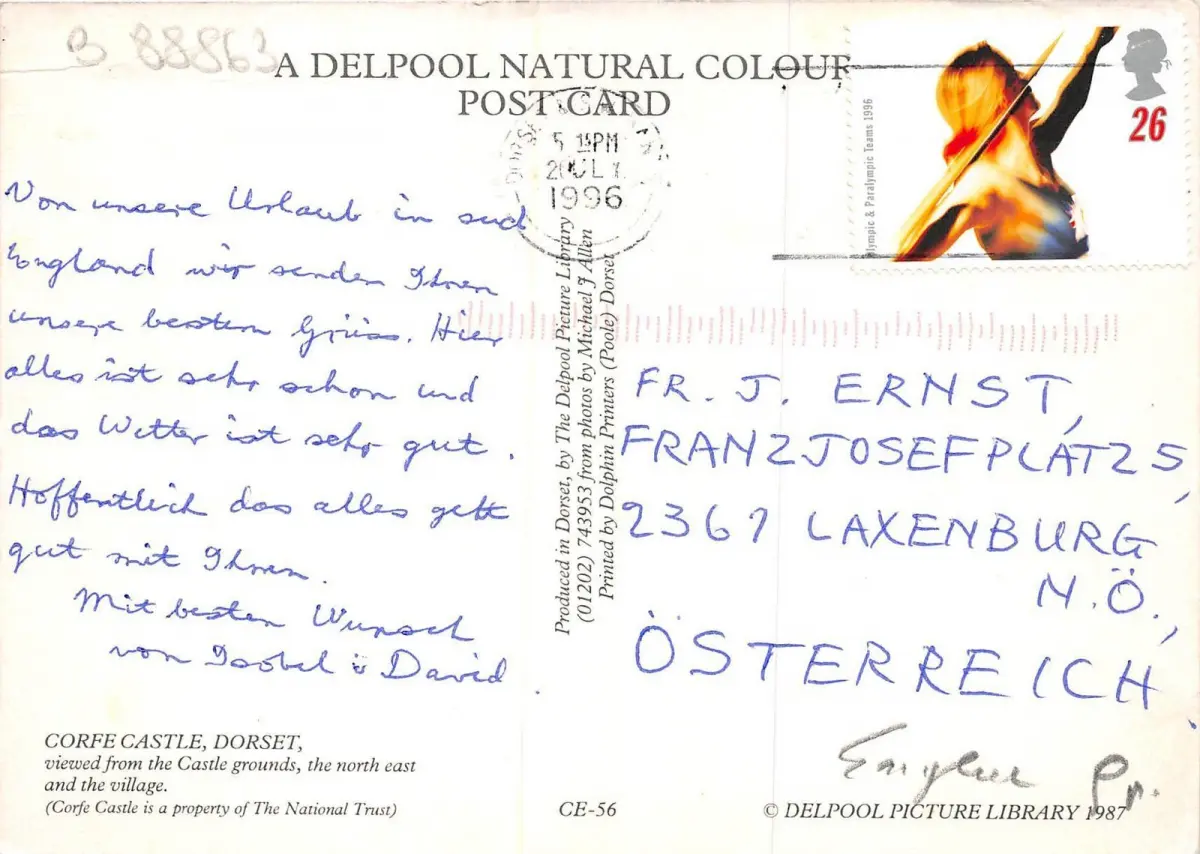 B 88863
A DELPOOL NATURAL COLOUR
POST CARD
5 15PM
2 JLY
1996
Olympic & Paralympic Teams 1996
26
Von unsere Urlaub in sud
England wir senden Ihnen
unsere besten Grüss. Hier
alles ist sehr schon und
das Wetter ist sehr gut.
Hoffentlich das alles geht
gut mit Ihnen.
Mit besten Wunsch
von Isobel ü David.
Produced in Dorset, by The Delpool Picture Library
(01202) 743953 from photos by Michael J Allen
Printed by Dolphin Printers (Poole) Dorset
FR. J. ERNST,
FRANZJOSEFPLATZ 5,
2361 LAXENBURG
N.Ö.,
ÖSTERREICH.
CORFE CASTLE, DORSET,
viewed from the Castle grounds, the north east
and the village.
(Corfe Castle is a property of The National Trust)
CE-56
© DELPOOL PICTURE LIBRARY 1987